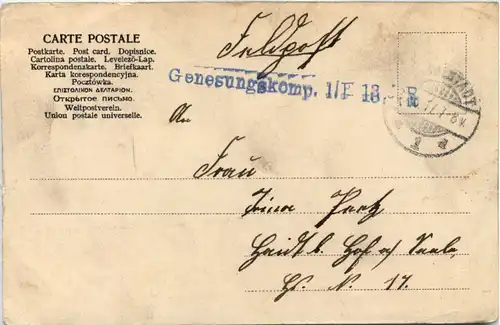 CARTE POSTALE
Postkarte. Post card. Dopisnice.
Cartolina postale. Levelező-Lap.
Korrespondenzkarte. Briefkaart.
Karta korespondencyjna.
Pocztówka.
ΕΠΙΣΤΟΛΙΚΟΝ ΔΕΛΤΑΡΙΟΝ.
Открытое письмо.
Weltpostverein.
Union postale universelle.
Feldpost
Genesungskomp. 1/I 13. R
STADT
An
Frau
Haidt b. Hof a/ Saale
Hs. N. 17.